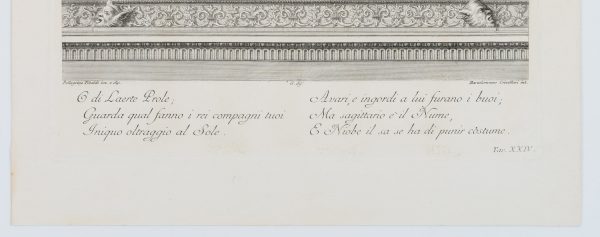 Pellegrino Tibaldi inv. e dip.
Bartolommeo Crivellari int.
O di Laerte Prole,
Guarda qual fanno i rei compagni tuoi
Iniquo oltraggio al Sole.
Avari, e ingordi a lui furano i buoi;
Ma sagittario è il Nume,
E Niobe il sa se ha di punir costume.
Tav. XXIV.